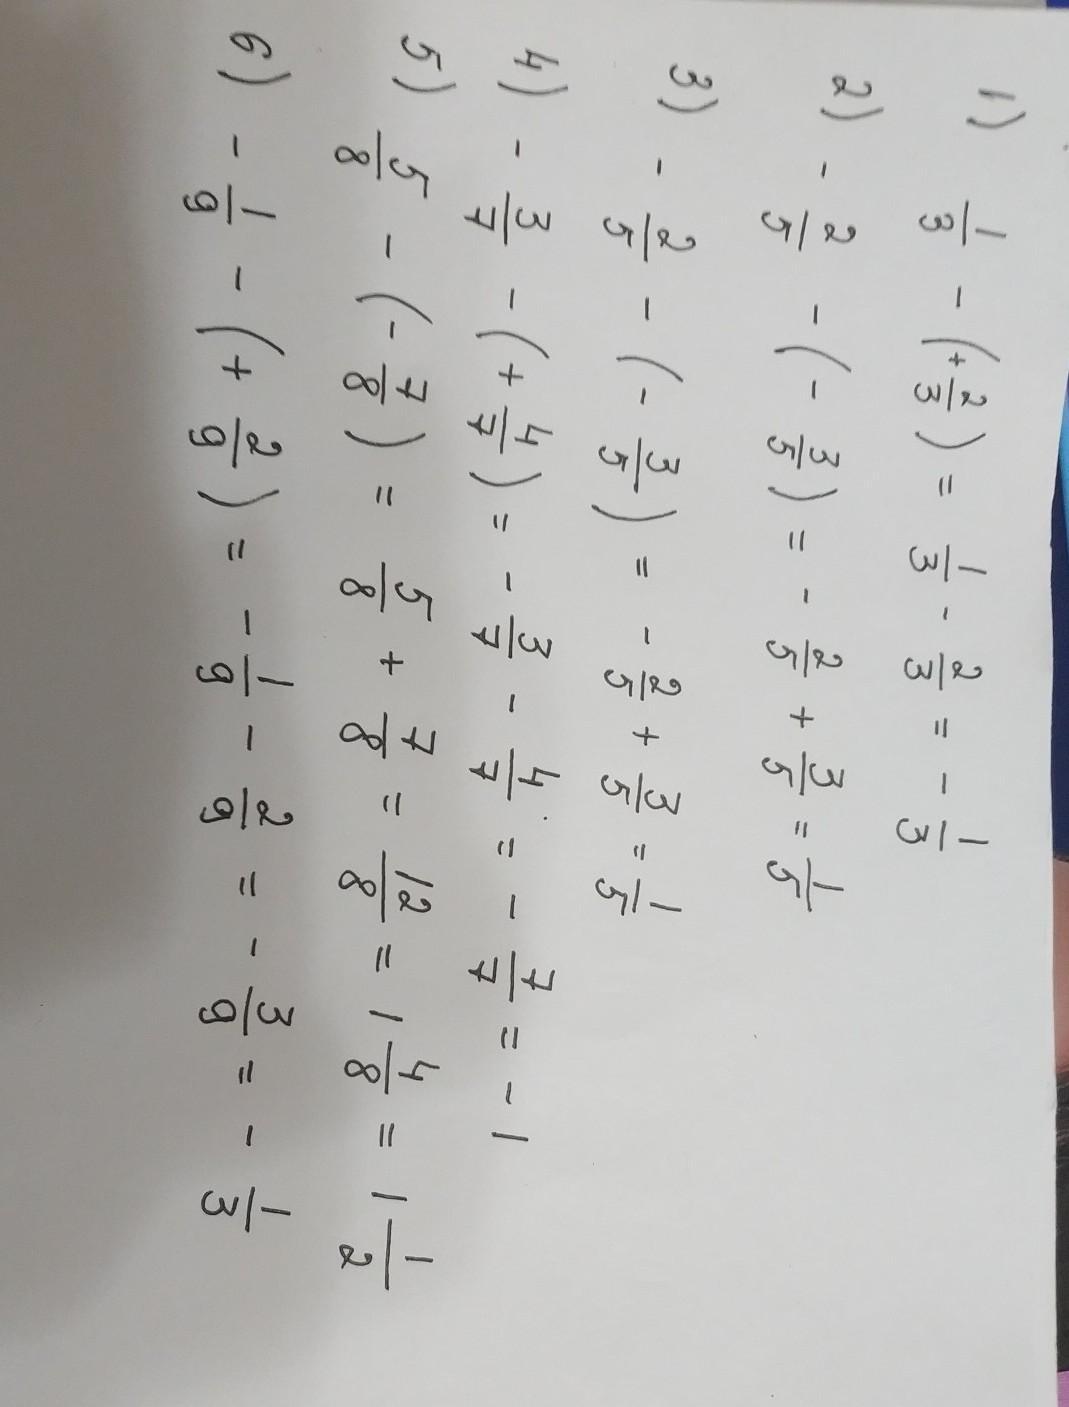 1) 1/3 - (+2/3) = 1/3 - 2/3 = - 1/3
2) - 2/5 - (- 3/5) = - 2/5 + 3/5 = 1/5
3) - 2/5 - (- 3/5) = - 2/5 + 3/5 = 1/5
4) - 3/7 - (+ 4/7) = - 3/7 - 4/7 = - 7/7 = - 1
5) 5/8 - (- 7/8) = 5/8 + 7/8 = 12/8 = 1 4/8 = 1 1/2
6) - 1/9 - (+ 2/9) = - 1/9 - 2/9 = - 3/9 = - 1/3